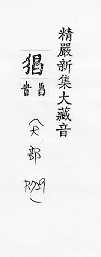 精嚴新集大藏音
猖
昌音
(犬部
R729)